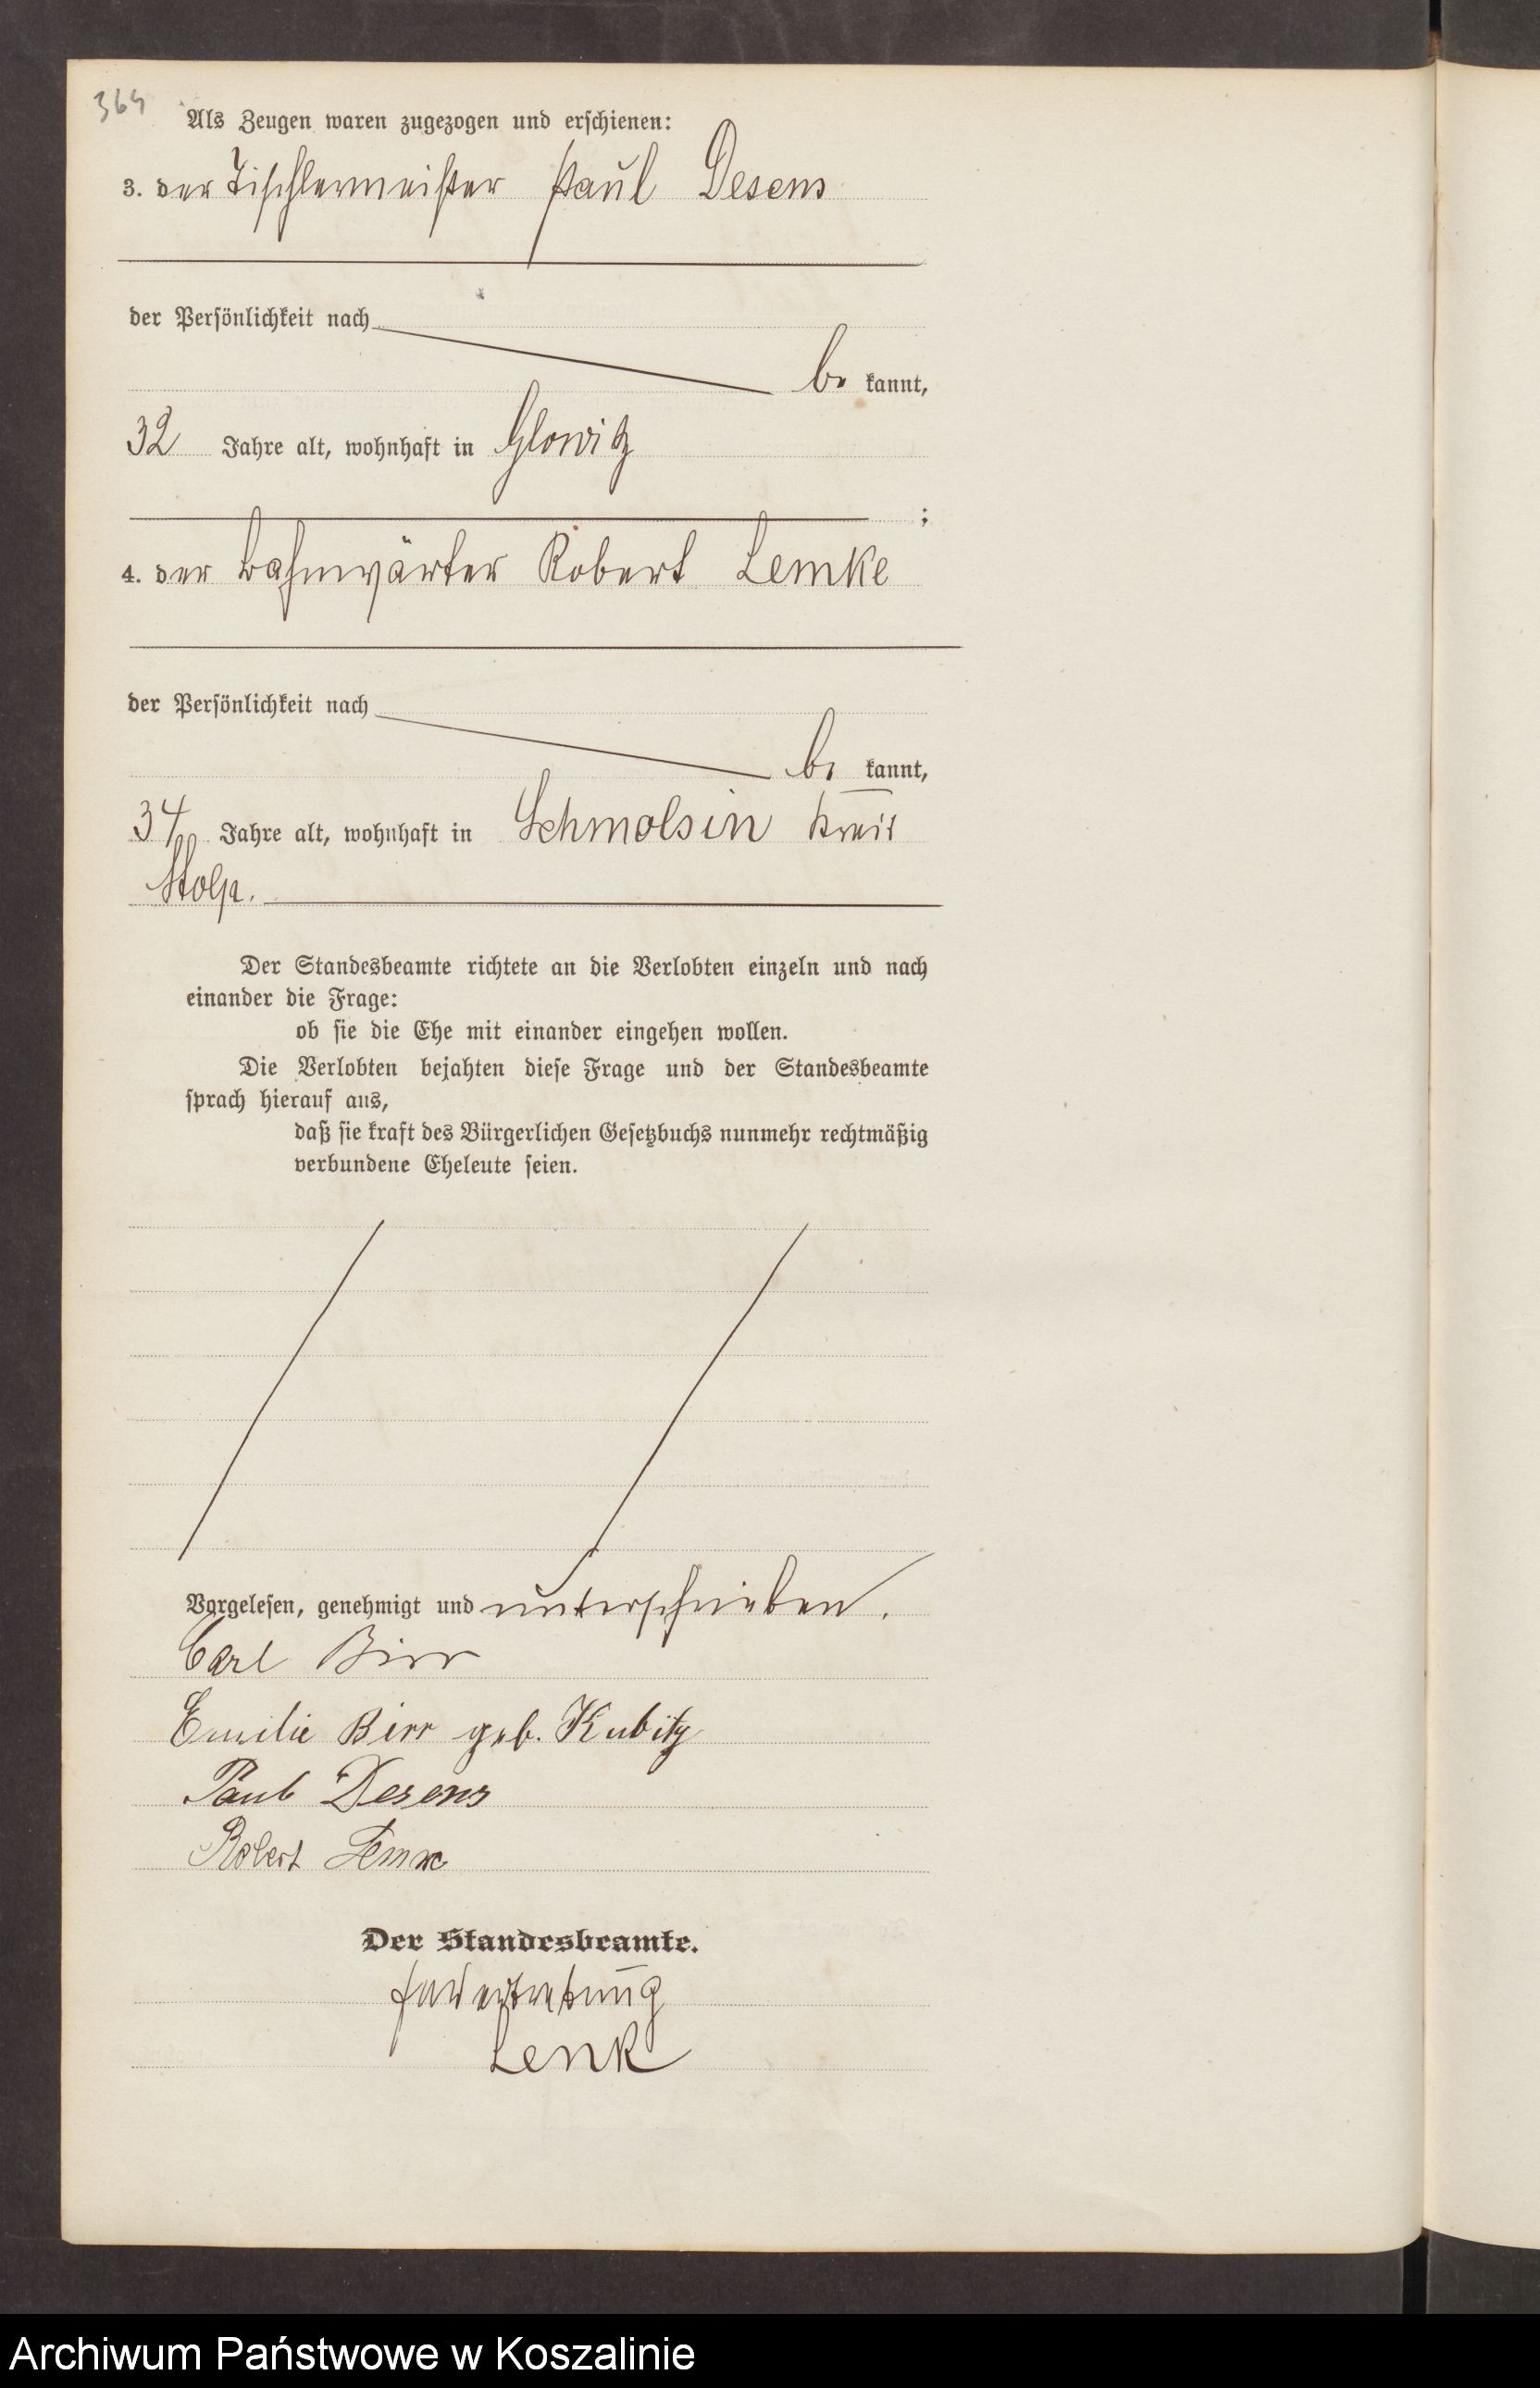 364
Als Zeugen waren zugezogen und erschienen:
3. der Tischlermeister Paul Desens
der Persönlichkeit nach
be kannt,
32 Jahre alt, wohnhaft in Glowitz
;
4. der Bahnwärter Robert Lemke
der Persönlichkeit nach
be kannt,
34 Jahre alt, wohnhaft in Schmolsin Kreis
Stolp.
Der Standesbeamte richtete an die Verlobten einzeln und nach
einander die Frage:
ob sie die Ehe mit einander eingehen wollen.
Die Verlobten bejahten diese Frage und der Standesbeamte
sprach hierauf aus,
daß sie kraft des Bürgerlichen Gesetzbuchs nunmehr rechtmäßig
verbundene Eheleute seien.
Vorgelesen, genehmigt und unterschrieben.
Carl Birr
Emilie Birr geb. Kubitz
Paul Desens
Robert
Der Standesbeamte.
In Vertretung
Lenk
Archiwum Państwowe w Koszalinie